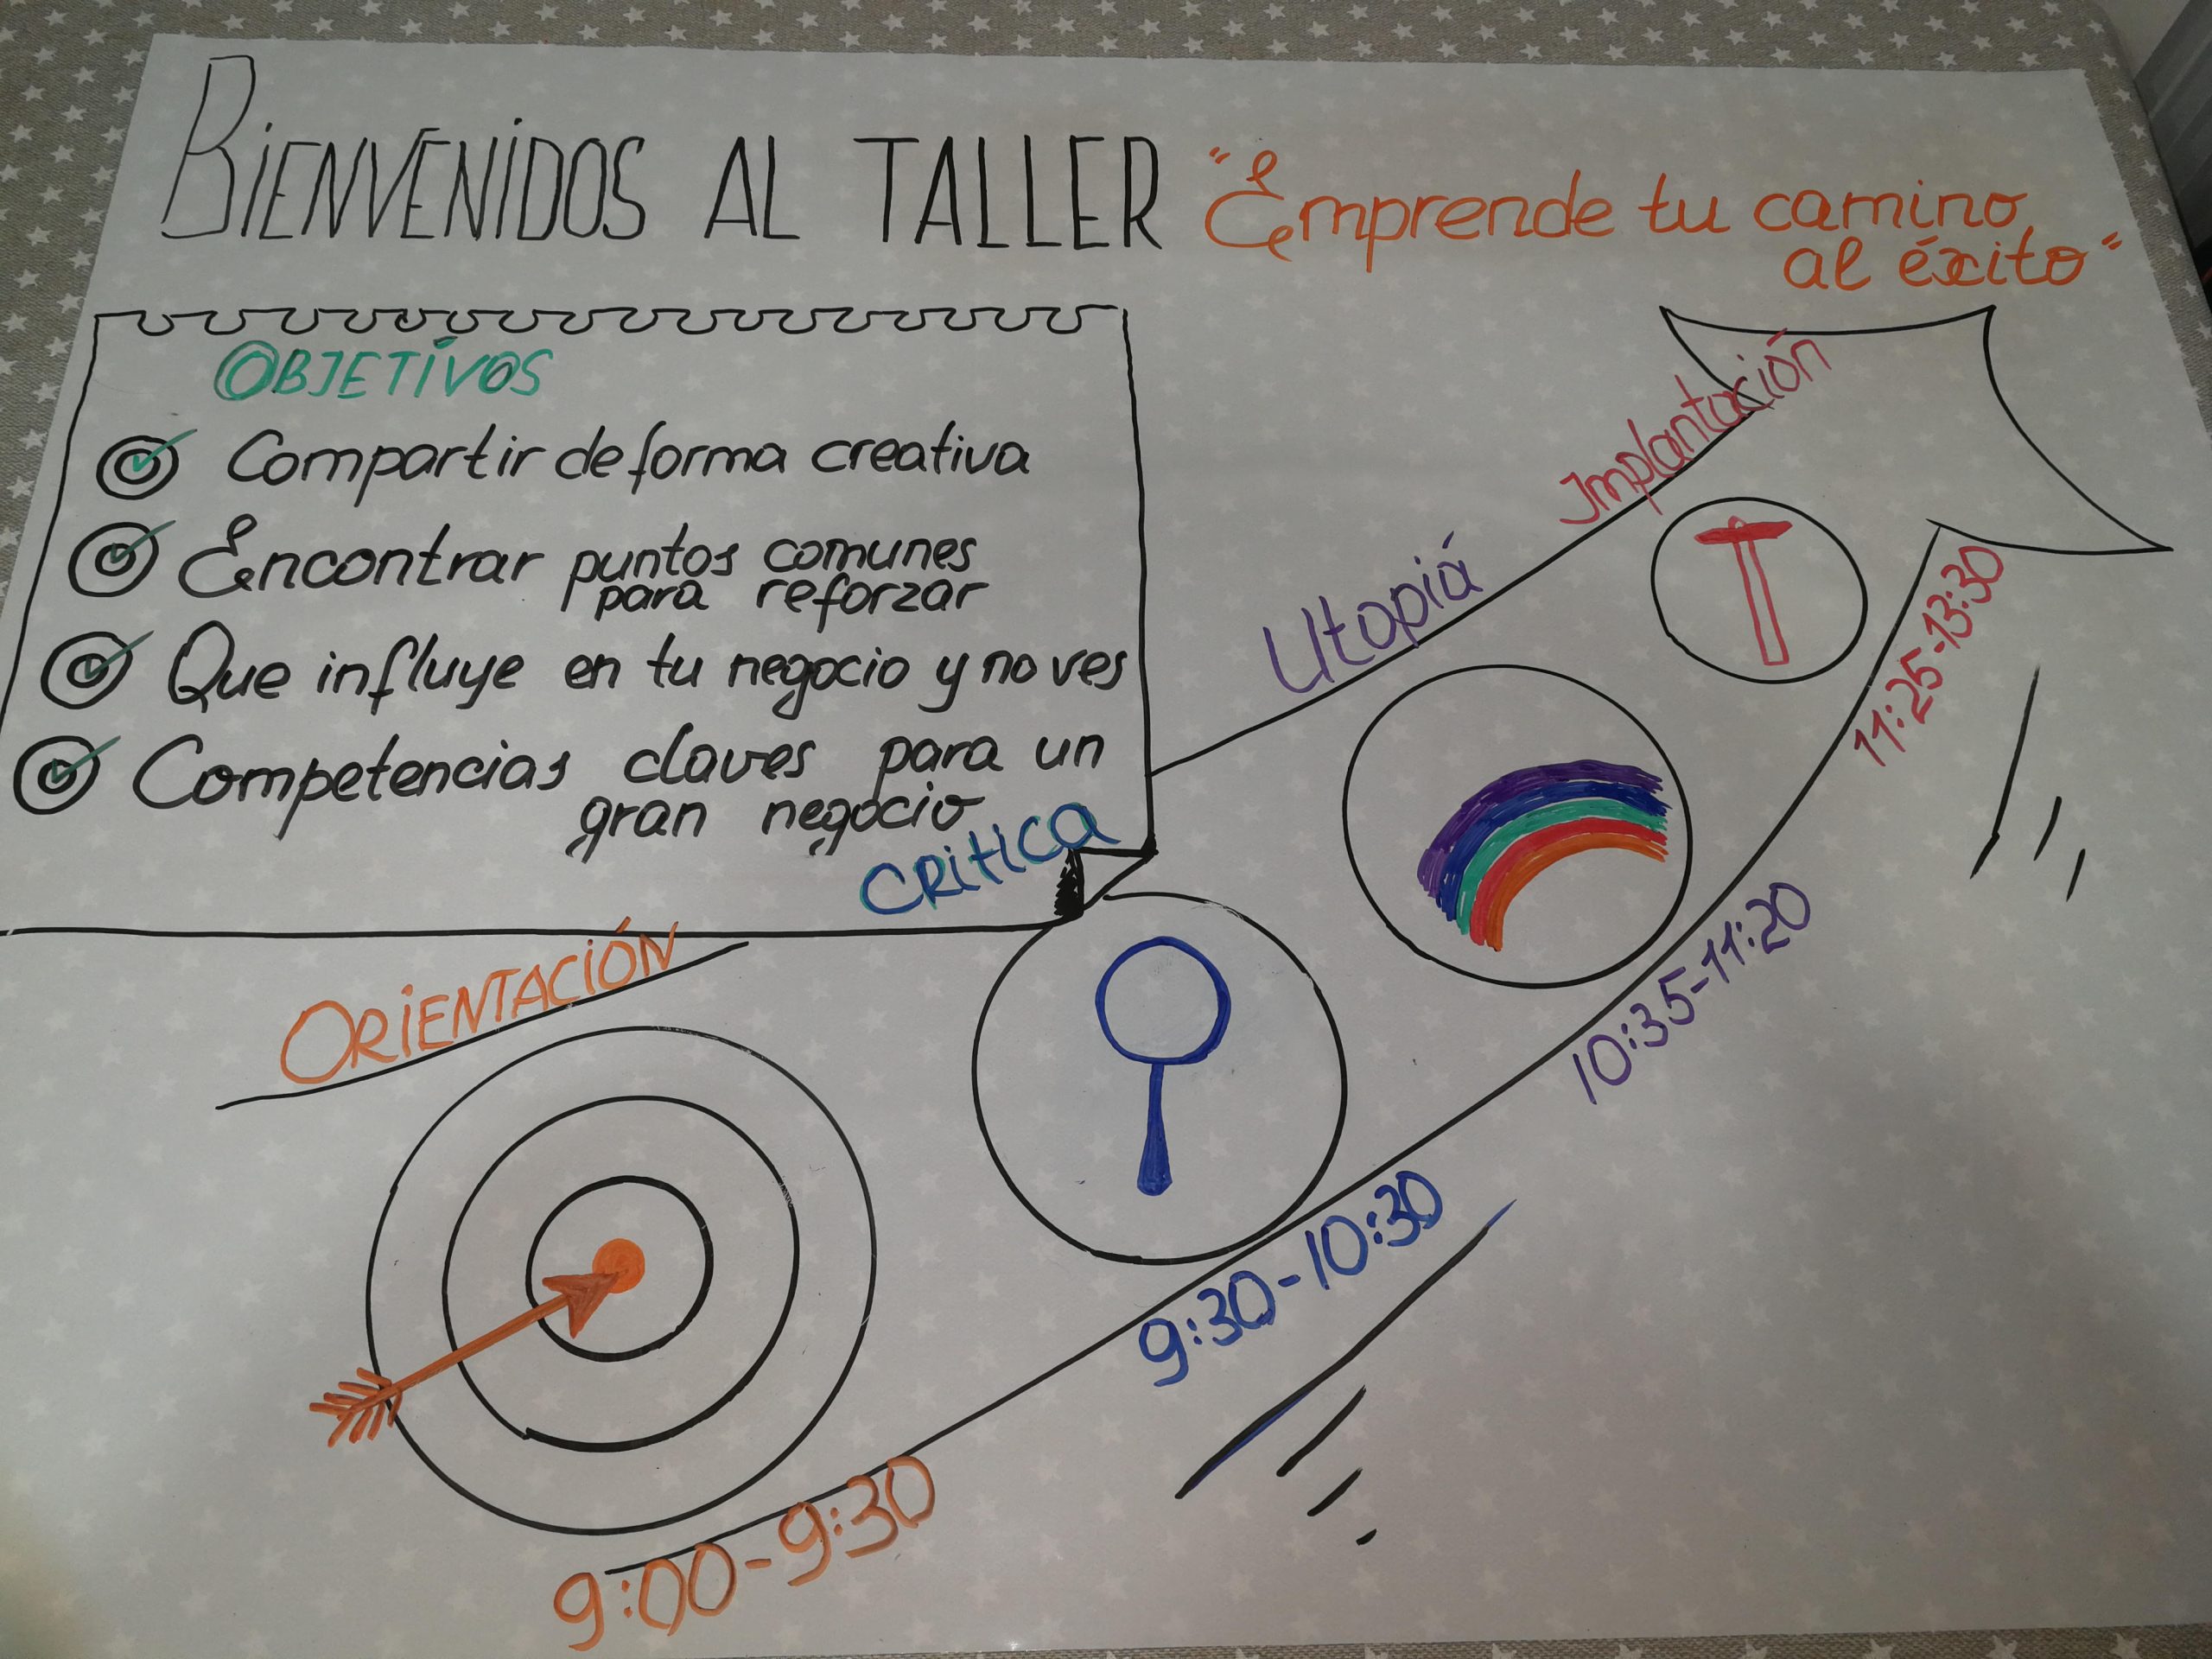 BIENVENIDOS AL TALLER "Emprende tu camino
al éxito"
OBJETIVOS
Compartir de forma creativa
Encontrar puntos comunes
para reforzar
Que influye en tu negocio y no ves
Competencias claves para un
gran negocio
ORIENTACIÓN
CRITICA
Utopiá
Implantación
9:00-9:30
9:30-10:30
10:35-11:20
11:25-13:30